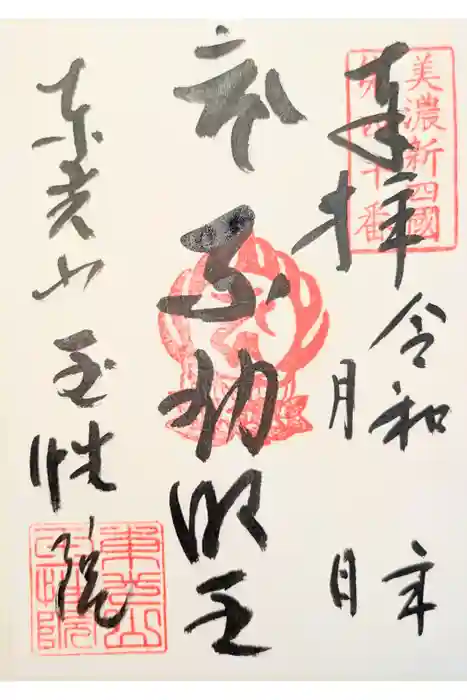 美濃新四國
第四十番
奉拝 令和 年
月 日
不動明王
東光山 玉性院
東光山
玉性院